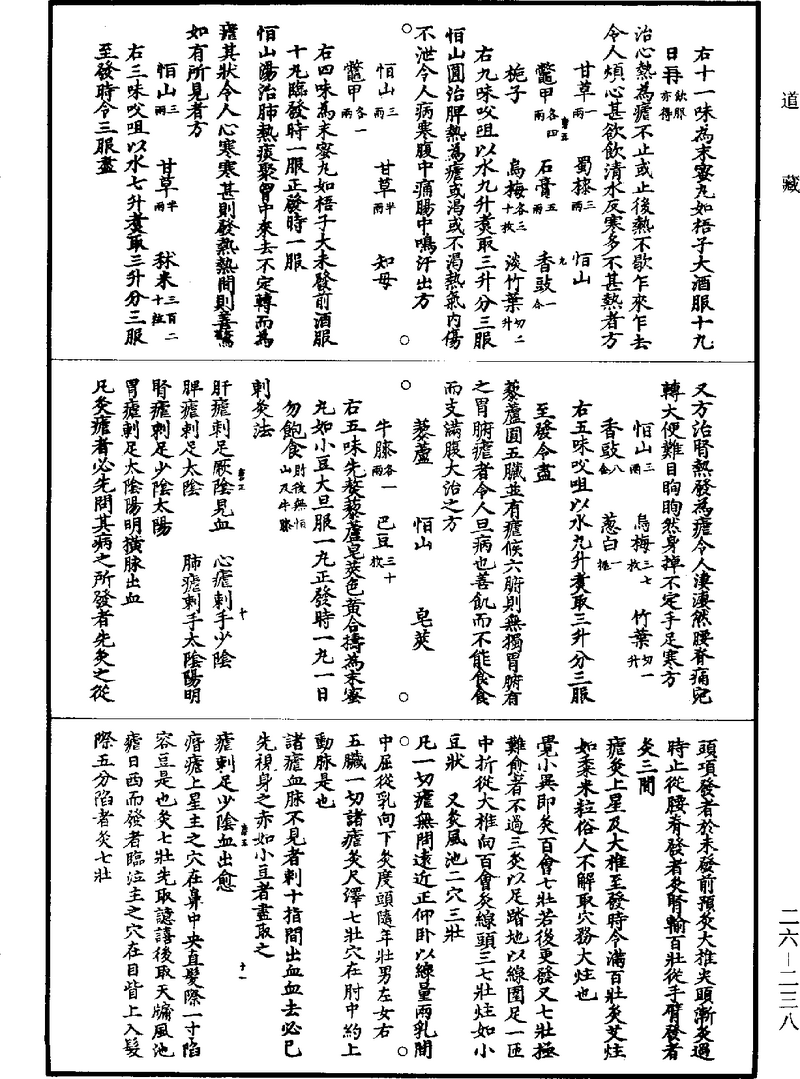 道藏
右十一味為末蜜丸如梧子大酒服十丸
日再飲服亦得
治心熱為瘧不止或止後熱不歇乍來乍去
令人煩心甚欲飲清水反寒多不甚熱者方
甘草一兩 蜀㯶三兩 恒山
鼈甲各四兩 石膏五兩 香豉一合
梔子 烏梅各三十枚 淡竹葉切二升
右九味㕮咀以水九升煑取三升分三服
恒山圓治脾熱為瘧或渴或不渴熱氣內傷
不泄令人病寒腹中痛腸中鳴汗出方
恒山三兩 甘草半兩 知母
鼈甲各一兩
右四味為末蜜丸如梧子大未發前酒服
十丸臨發時一服正發時一服
恒山湯治肺熱痰聚胷中來去不定轉而為
瘧其狀令人心寒寒甚則發熱熱間則善驚
如有所見者方
恒山三兩 甘草半兩 秫米三百二十粒
右三味㕮咀以水七升煑取三升分三服
至發時令三服盡
又方治腎熱發為瘧令人凄凄然腰脊痛宛
轉大便難目眴眴然身掉不定手足寒方
恒山三兩 烏梅三七枚 竹葉切一升
香豉八合 葱白一握
右五味㕮咀以水九升煑取三升分三服
至發令盡
藜蘆圓五臟並有瘧候六腑則無獨胃腑有
之胃腑瘧者令人旦病也善飢而不能食食
而支滿腹大治之方
藜蘆 恒山 皂莢
牛膝各一兩 巴豆三十枚
右五味先熬藜蘆皂莢色黃合擣為末蜜
丸如小豆大旦服一丸正發時一丸一日
勿飽食肘後無恒山及牛膝
刺灸法
肝瘧刺足厥陰見血 心瘧刺手少陰
脾瘧刺足太陰 肺瘧刺手太陰陽明
腎瘧刺足少陰太陽
胃瘧刺足太陰陽明橫脉出血
凡灸瘧者必先問其病之所發者先灸之從
頭項發者於未發前預灸大椎尖頭漸灸過
時止從腰脊發者灸腎輸百壯從手臂發者
灸三間
瘧灸上星及大椎至發時令滿百壯灸艾炷
如黍米粒俗人不解取穴務大炷也
覺小異即灸百會七壯若後更發又七壯極
難愈者不過三灸以足踏地以線圍足一匝
中折從大椎向百會灸線頭三七壯炷如小
豆狀 又灸風池二穴三壯
凡一切瘧無問遠近正仰卧以線量兩乳間
中屈從乳向下灸度頭隨年壯男左女右
五臟一切諸瘧灸尺澤七壯穴在肘中約上
動脉是也
諸瘧血脉不見者刺十指間出血血去必已
先視身之赤如小豆者盡取之
瘧刺足少陰血出愈
痎瘧上星主之穴在鼻中央直髮際一寸陷
容豆是也灸七壯先取譩譆後取天牖風池
瘧日西而發者臨泣主之穴在目眥上入髮
際五分陷者灸七壯
二六—二三八